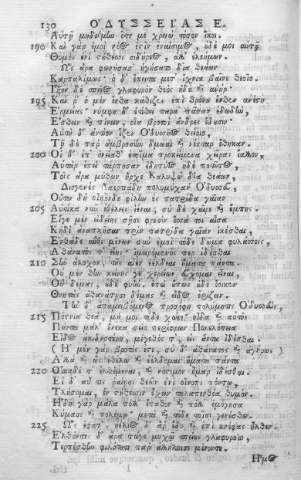 130 ΟΔΥΣΣΕΙΑΣ Ε.
Αὐτῇ μηδοίμην ὅτε με χρειὼ τόσον ἵκοι.
190 Καὶ γὰρ ἐμοὶ νόος ἐστὶν ἐναίσιμος, οὐδέ μοι αὐτῇ
Θυμὸς ἐνὶ στήθεσσι σιδήρεος, ἀλλ' ἐλεήμων.
Ὣς ἄρα φωνήσασ' ἡγήσατο δῖα θεάων
Καρπαλίμως· ὁ δ' ἔπειτα μετ' ἴχνια βαῖνε θεοῖο.
Ἷξον δὲ σπεῖος γλαφυρὸν θεὸς ἠδὲ καὶ ἀνήρ·
195 Καί ῥ' ὁ μὲν ἔνθα καθέζετ' ἐπὶ θρόνου ἔνθεν ἀνέστη
Ἑρμείας· νύμφη δ' ἐτίθει πάρα πᾶσαν ἐδωδὴν,
Ἔσθειν καὶ πίνειν, οἷα βροτοὶ ἄνδρες ἔδουσιν·
Αὐτὴ δ' ἀντίον ἷζεν Ὀδυσσῆος θείοιο,
Τῇ δὲ παρ' ἀμβροσίην δμωαὶ καὶ νέκταρ ἔθηκαν.
200 Οἱ δ' ἐπ' ὀνείαθ' ἑτοῖμα προκείμενα χεῖρας ἴαλλον,
Αὐτὰρ ἐπεὶ τάρπησαν ἐδητύος ἠδὲ ποτῆτος,
Τοῖς ἄρα μύθων ἦρχε Καλυψὼ δῖα θεάων,
Διογενὲς Λαερτιάδη πολυμήχαν' Ὀδυσσεῦ,
Οὕτω δὴ οἶκόνδε φίλην ἐς πατρίδα γαῖαν
205 Αὐτίκα νῦν ἐθέλεις ἰέναι, σὺ δὲ χαῖρε καὶ ἔμπης.
Εἴγε μὲν εἰδείης σῇσι φρεσὶν ὅσσα τοι αἶσα
Κήδε' ἀναπλῆσαι πρὶν πατρίδα γαῖαν ἱκέσθαι,
Ἐνθάδε αὖθι μένων σὺν ἐμοὶ τόδε δῶμα φυλάσσοις,
Ἀθάνατός τ' εἴης ἱμειρόμενός περ ἰδέσθαι
210 Σὴν ἄλοχον, τῆς αἰὲν ἐέλδεαι ἤματα πάντα
Οὐ μέν θην κείνης γε χερείων εὔχομαι εἶναι,
Οὐ δέμας, οὐδὲ φυὴν, ἐπεὶ οὔπως οὐδὲ ἔοικεν
Θνητὰς ἀθανάτῃσι δέμας καὶ εἶδος ἐρίζειν.
Τὴν δ' ἀπαμειβόμενος προσέφη πολύμητις Ὀδυσσεύς,
215 Πότνια θεὰ, μή μοι τόδε χώεο· οἶδα καὶ αὐτὸς
Πάντα μάλ', ἕνεκα σεῖο περίφρων Πηνελόπεια
Εἶδος ἀκιδνοτέρη, μέγεθός τ', εἰς ἄντα ἰδέσθαι.
(Ἡ μὲν γὰρ βροτός ἐστι, σὺ δ' ἀθάνατος καὶ ἀγήρως)
Ἀλλὰ καὶ ὣς ἐθέλω καὶ ἐέλδομαι ἤματα πάντα
220 Οἴκαδέ τ' ἐλθέμεναι, καὶ νόστιμον ἦμαρ ἰδέσθαι.
Εἰ δ' αὖ τις ῥαίῃσι θεῶν ἐνὶ οἴνοπι πόντῳ,
Τλήσομαι, ἐν στήθεσσιν ἔχων ταλαπενθέα θυμόν.
Ἤδη γὰρ μάλα πόλλ' ἔπαθον καὶ πόλλ' ἐμόγησα
Κύμασι καὶ πολέμῳ, μετὰ καὶ τόδε τοῖσι γενέσθω.
225 Ὣς ἔφατ', ἠέλιος δ' ἄρ' ἔδυ καὶ ἐπὶ κνέφας ἦλθεν·
Ἐλθόντες δ' ἄρα τώγε μυχῷ σπείους γλαφυροῖο,
Τερπέσθην φιλότητι παρ' ἀλλήλοισι μένοντε.
Ἦμος